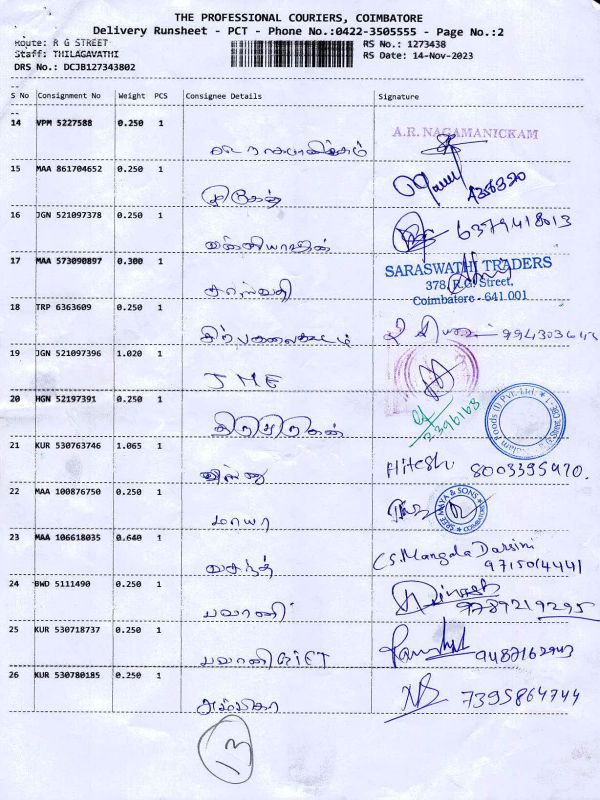 THE PROFESSIONAL COURIERS, COIMBATORE
Delivery Runsheet - PCT - Phone No.:0422-3505555 - Page No.:2
Route: R G STREET
Staff: THILAGAVATHI
DRS No.: DCJB127343802
RS No.: 1273438
RS Date: 14-Nov-2023
S No Consignment No Weight PCS Consignee Details Signature
14 VPM 5227588 0.250 1
A.R. NAGAMANICKAM
15 MAA 861704652 0.250 1
முகேஷ்
16 JGN 521097378 0.250 1
6379418013
17 MAA 573090897 0.300 1
SARASWATHI TRADERS
378, R.G. Street,
Coimbatore - 641 001
சரஸ்வதி
18 TRP 6363609 0.250 1
19 JGN 521097396 1.020 1
JME
20 HGN 52197391 0.250 1
2396168
21 KUR 530763746 1.065 1
விஷ்ணு Hitesh 8003395920.
22 MAA 100876750 0.250 1
மாயா
SREE MAYA & SONS
COIMBATORE
23 MAA 106618035 0.640 1
வசந்த் S. Mangala Darsini
9715014441
24 BWD 5111490 0.250 1
பவானி Dinesh
9789219295
25 KUR 530718737 0.250 1
பவானி 9487162943
26 KUR 530780185 0.250 1
அம்பிகா 7395864744
13